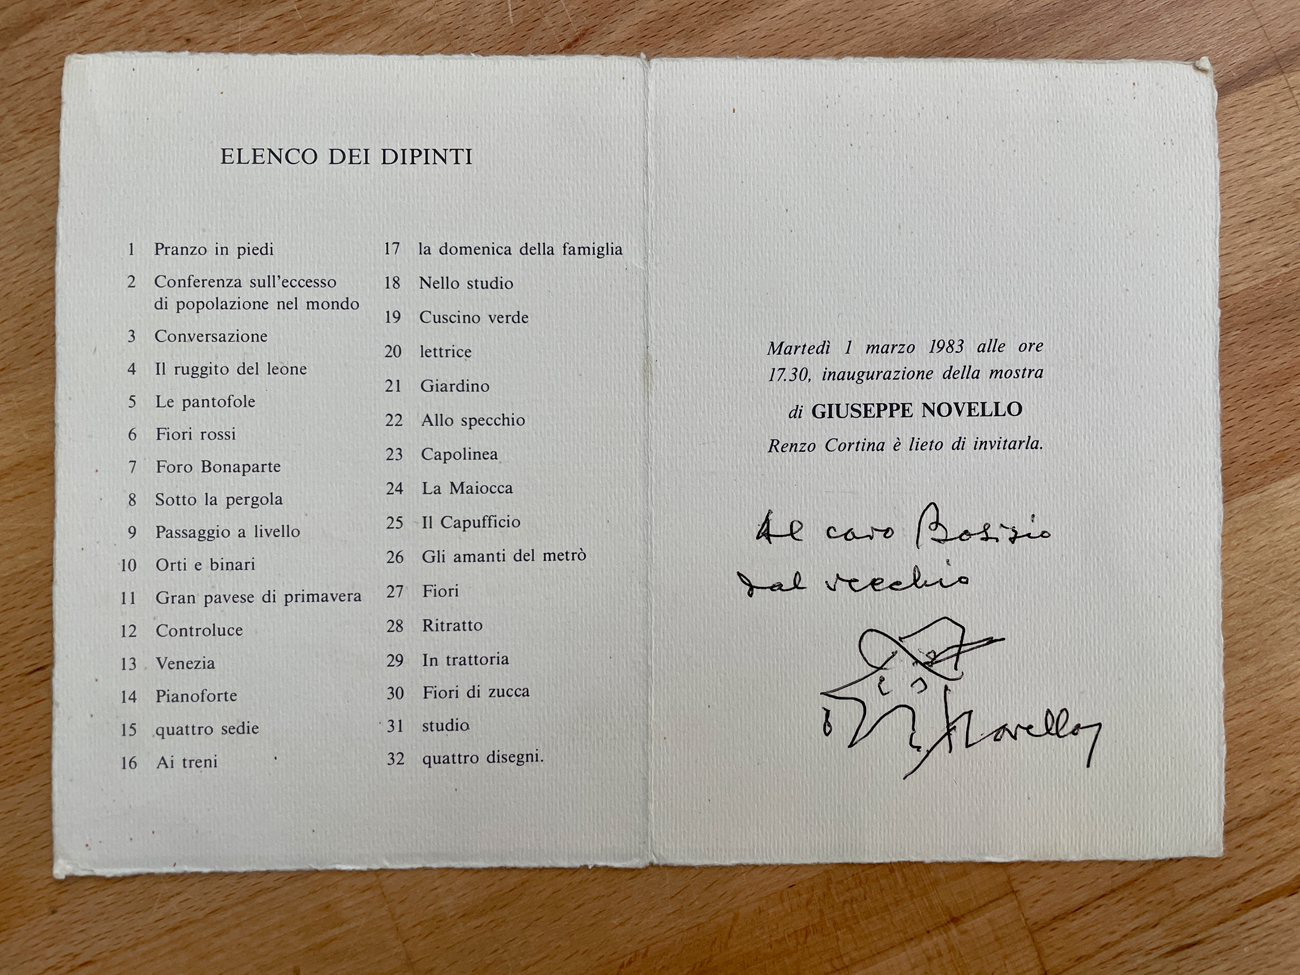 ELENCO DEI DIPINTI
1 Pranzo in piedi
2 Conferenza sull'eccesso
di popolazione nel mondo
3 Conversazione
4 Il ruggito del leone
5 Le pantofole
6 Fiori rossi
7 Foro Bonaparte
8 Sotto la pergola
9 Passaggio a livello
10 Orti e binari
11 Gran pavese di primavera
12 Controluce
13 Venezia
14 Pianoforte
15 quattro sedie
16 Ai treni
17 la domenica della famiglia
18 Nello studio
19 Cuscino verde
20 lettrice
21 Giardino
22 Allo specchio
23 Capolinea
24 La Maiocca
25 Il Capufficio
26 Gli amanti del metrò
27 Fiori
28 Ritratto
29 In trattoria
30 Fiori di zucca
31 studio
32 quattro disegni.
Martedì 1 marzo 1983 alle ore
17.30, inaugurazione della mostra
di GIUSEPPE NOVELLO
Renzo Cortina è lieto di invitarla.
Al caro Bosisio
dal vecchio
Novello